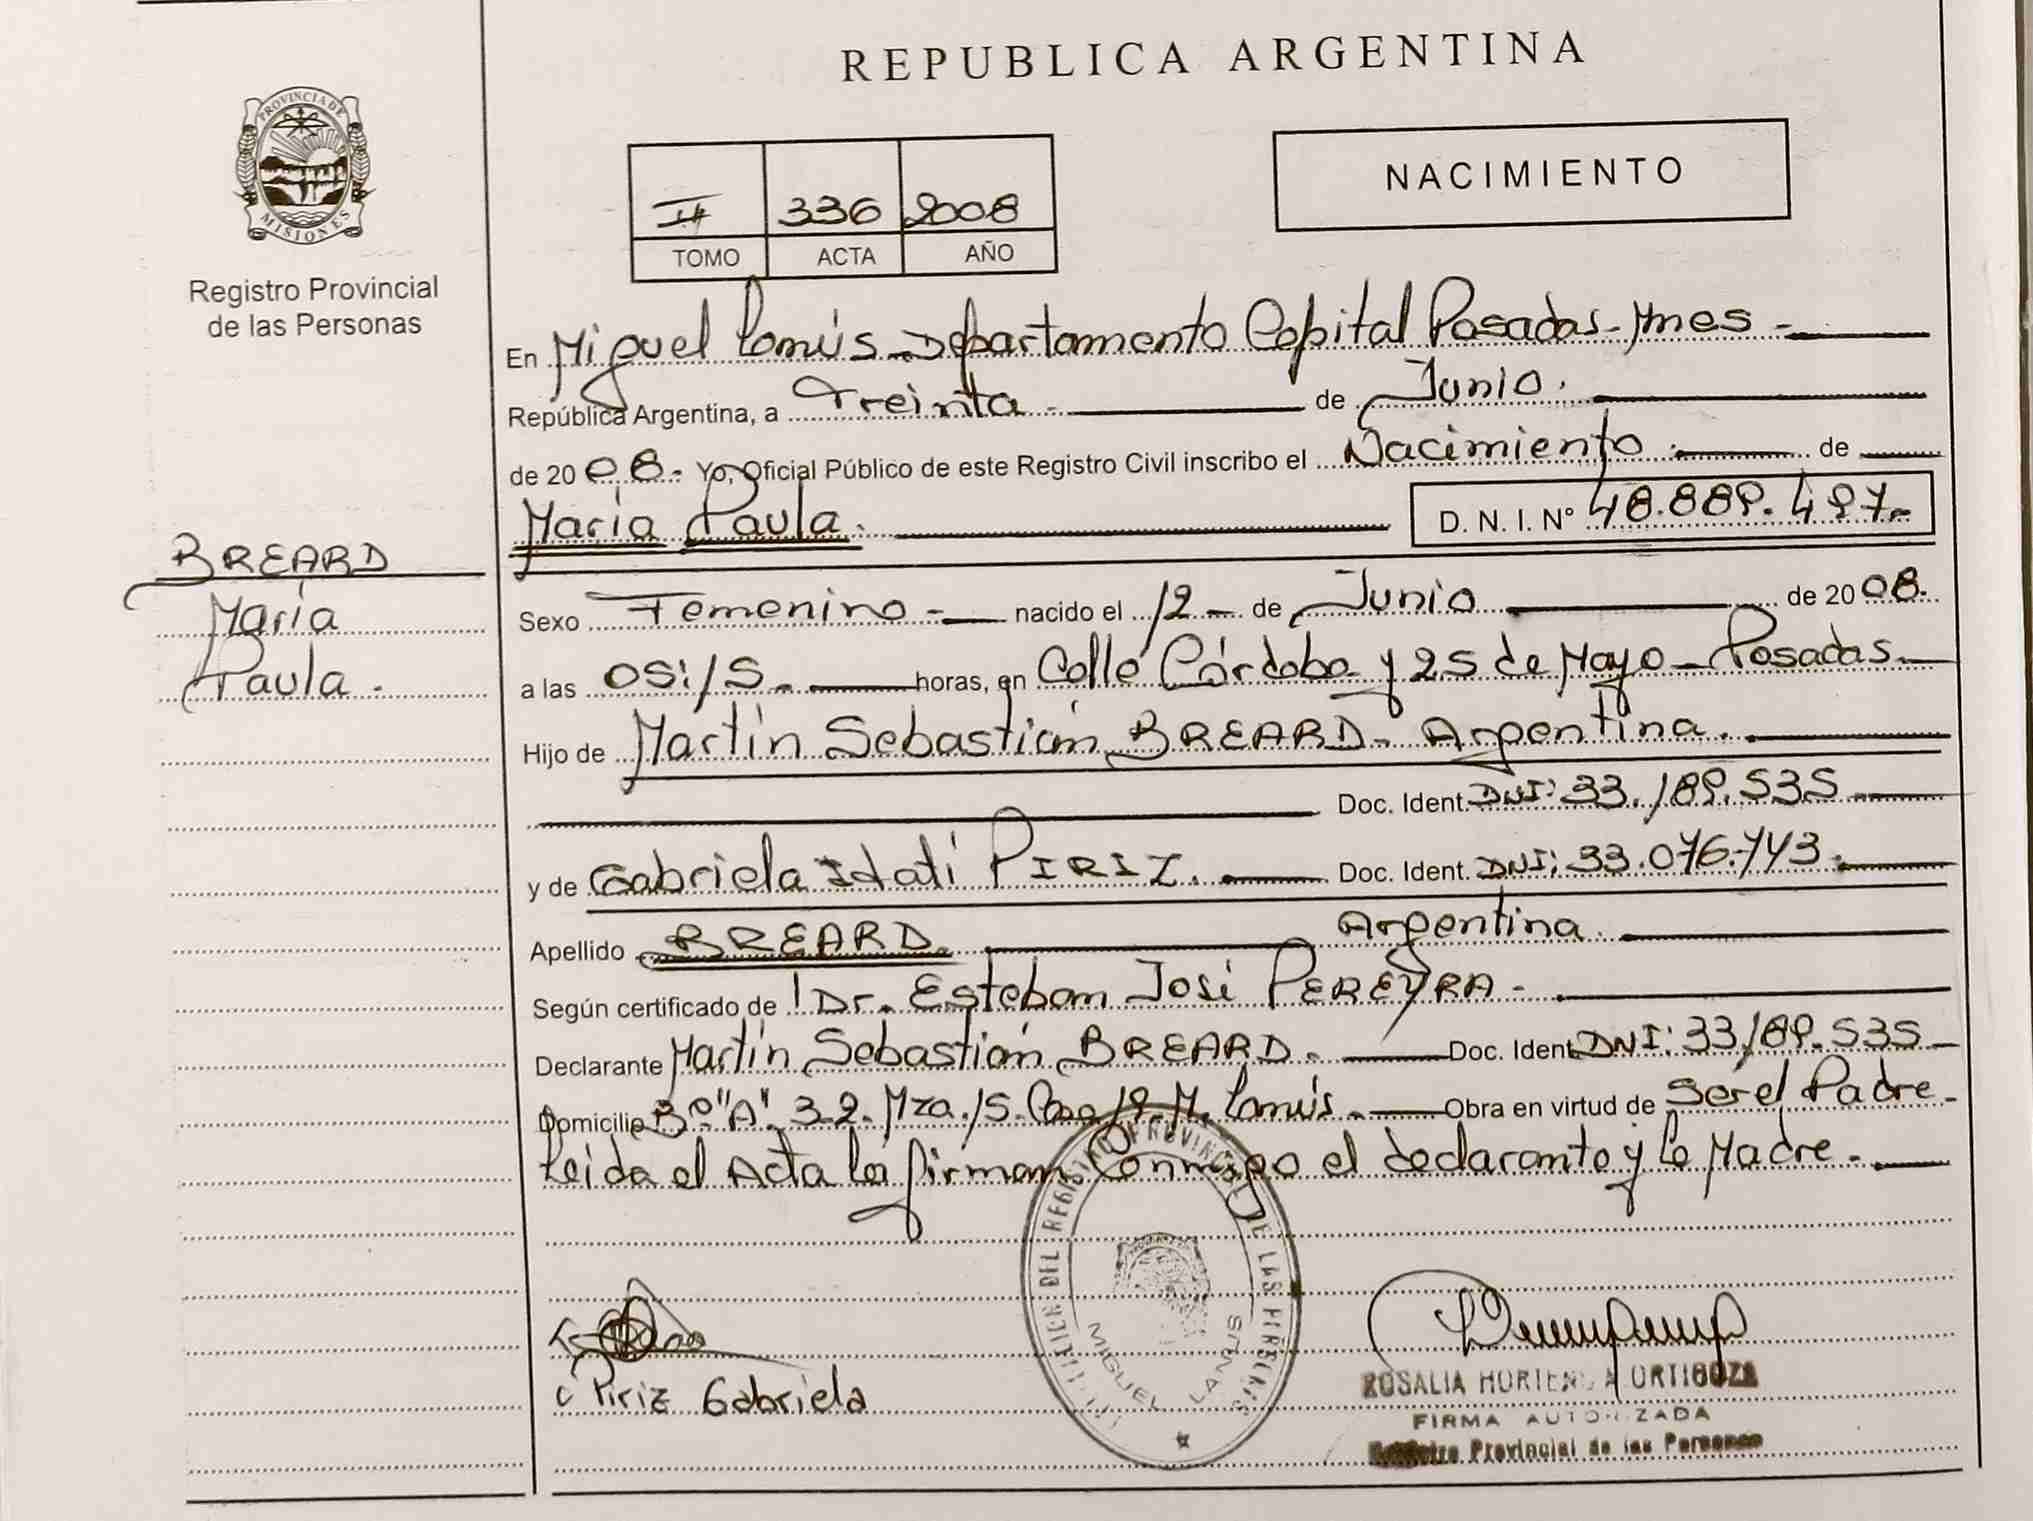 REPUBLICA ARGENTINA
PROVINCIA DE
MISIONES
Registro Provincial
de las Personas
336 2008
TOMO ACTA AÑO
NACIMIENTO
En Miguel Lanús - Departamento Capital Posadas - Mnes -
República Argentina, a Treinta - de Junio.
de 20 08. Yo, Oficial Público de este Registro Civil inscribo el Nacimiento. de
María Paula. D. N. I. N° 48.889.497.-
BREARD
María
Paula.
Sexo Femenino - nacido el 12 - de Junio de 20 08.
a las 05:15.- horas, en Calle Córdoba y 25 de Mayo - Posadas.
Hijo de Martín Sebastián BREARD - Argentina.
Doc. Ident. DNI: 33.189.535
y de Gabriela Itatí PIRIZ. Doc. Ident. DNI: 33.076.743.
Apellido BREARD. Argentina.
Según certificado de Dr. Esteban José PEREYRA -
Declarante Martín Sebastián BREARD. Doc. Ident DNI: 33.189.535
Domicilio Bº "A" 3-2. Mza. 15. Casa 19. M. Lanús. Obra en virtud de Ser el Padre -
Leida el Acta la firman Conmigo el declarante y la Madre.
DEL REGISTRO PROVINCIAL DE LAS PERSONAS
MIGUEL LANUS
Piriz Gabriela
ROSALIA HORTENSIA ORTIGOZA
FIRMA AUTORIZADA
Registro Provincial de las Personas